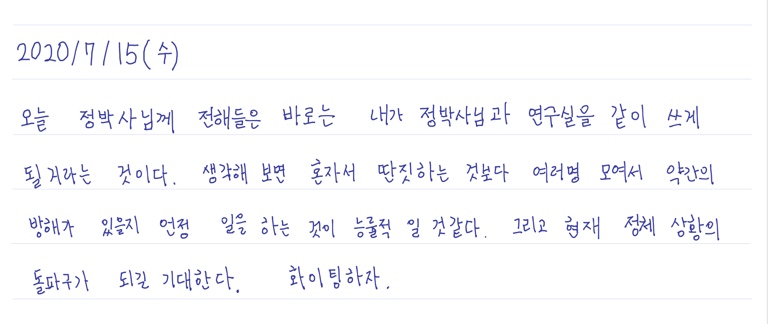 2020/7/15(수)
오늘 정박사님께 전해들은 바로는 내가 정박사님과 연구실을 같이 쓰게
될거라는 것이다. 생각해 보면 혼자서 딴짓하는 것보다 여러명 모여서 약간의
방해가 있을지 언정 일을 하는 것이 능률적 일 것같다. 그리고 현재 정체 상황의
돌파구가 되길 기대한다. 화이팅하자.